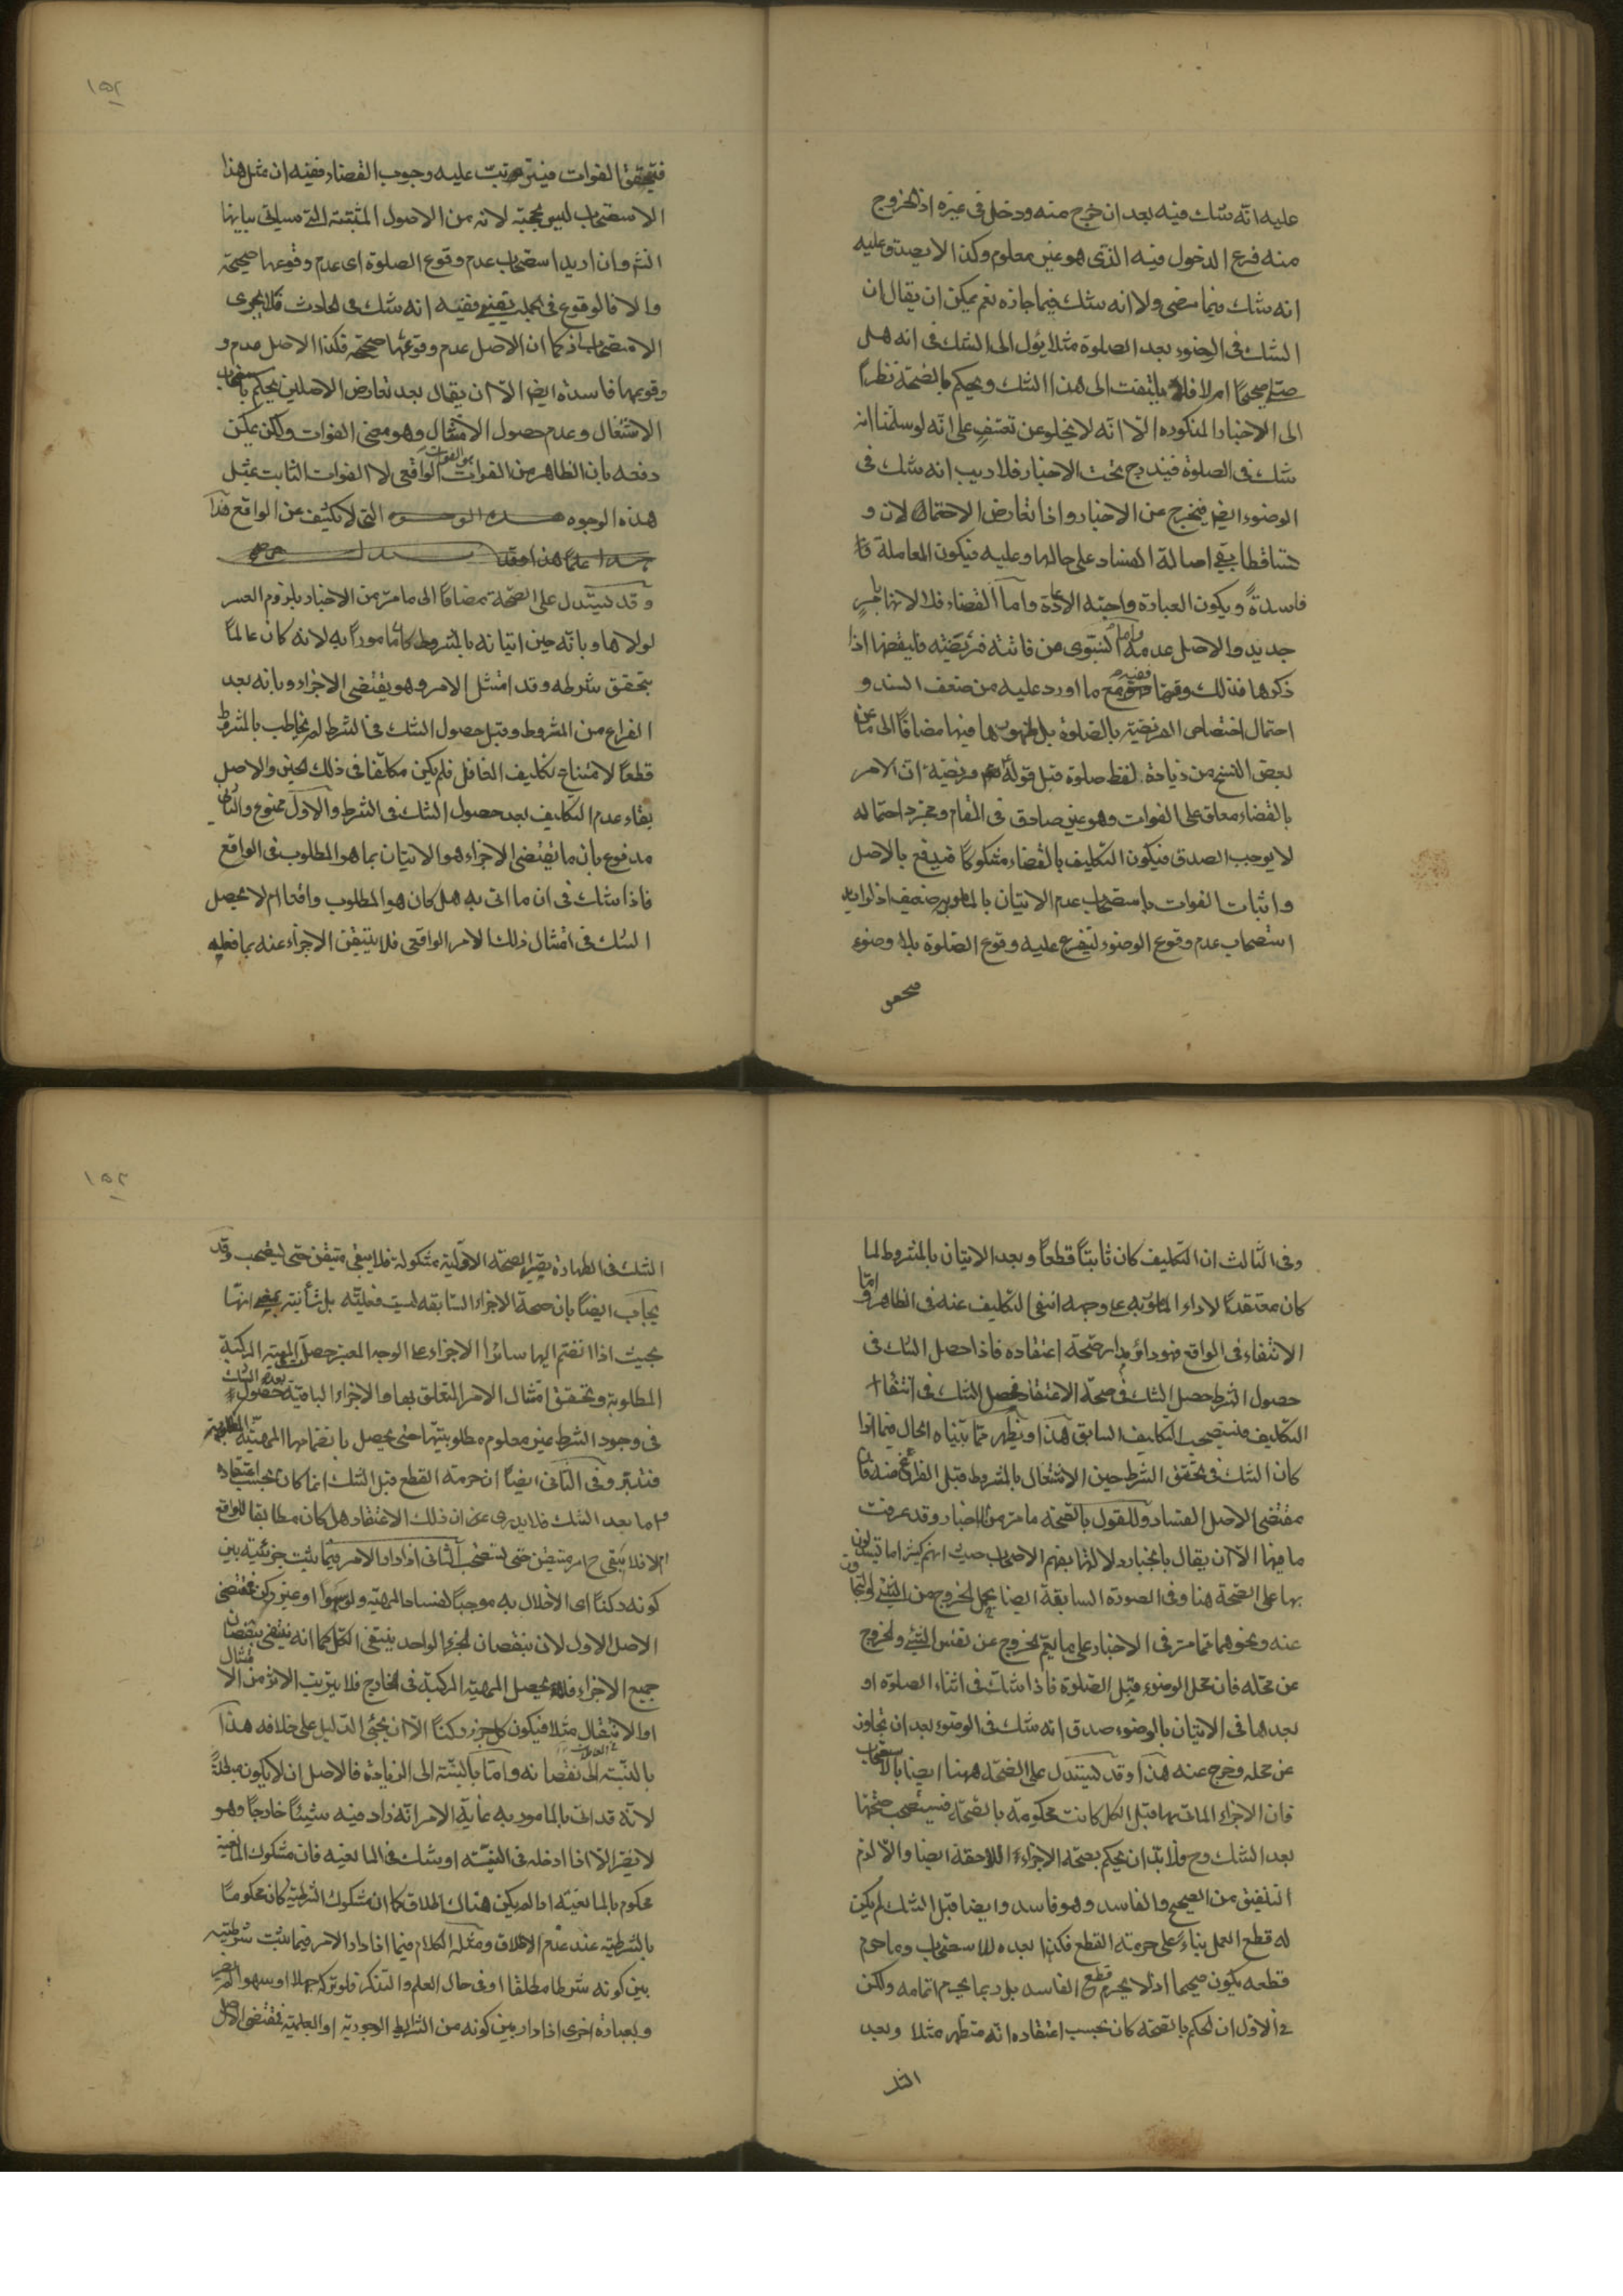 عليه انّه شك فيه بعد ان خرج منه ودخل فى غيره اذ الخروج
منه فرع الدخول فيه الذى هو غير معلوم وكذا لا يصدق عليه
انه شك فيما مضى ولا انه شك فيما جازه نعم يمكن ان يقال ان
الشك فى الوضوء بعد الصلوة مثلا يؤل الى الشك فى انه هل
صلّى صحيحًا ام لا فلا يلتفت الى هذا الشك ويحكم بالصّحّة نظرًا
الى الاخبار المذكوره الّا انّه لا يخلو عن تعسّفٍ على انّه لو سلّمنا انه
شك فى الصلوة فيندرج تحت الاخبار فلا ريب انه شك فى
الوضوء ايضا فيخرج عن الاخبار واذا تعارض الاحتمالان و
تساقطا بقى اصالة الفساد على حالها وعليه فيكون المعاملة
فاسدةً ويكون العبادة واجبة الاعادة وامّا القضاء فلا لانها بامرٍ
جديد والاصل عدمه وامّا النبّوى من فاتته فريضته فليقضها اذا
ذكرها فذلك وقتها ففيه مع ما اورد عليه من ضعف السند و
احتمال اختصاص الفريضة بالصلوة بل ظهورها فيها مضافًا الى ما عن
بعض النسخ من زيادة لفظ صلوة قبل قوله فريضة ان الامر
بالقضاء معلق على الفوات وهو غير صادق فى المقام ومجرّد احتماله
لا يوجب الصدق فيكون التكليف بالقضاء مشكوكًا فيدفع بالاصل
واثبات الفوات باستصحاب عدم الاتيان بالمامور به ضعيف اذ لو اريد
استصحاب عدم وقوع الوضوء ليتفرع عليه وقوع الصّلوة بلا وضوء
١٥٢
فيتحقق الفوات فيترتب عليه وجوب القضاء ففيه ان مثل هذا
الاستصحاب ليس بحجّة لانه من الاصول المثبتة التى سياتى بيانها
انش وان اريد استصحاب عدم وقوع الصلوة اى عدم وقوعها صحيحة
والا فالوقوع فى الجملة يقينى ففيه انه شك فى الحادث فلا يجرى
الاستصحاب اذ كما ان الاصل عدم وقوعها صحيحة فكذا الاصل عدم و
وقوعها فاسدة ايضا الّا ان يقال بعد تعارض الاصلين يحكم باستصحاب
الاشتغال وعدم حصول الامتثال وهو معنى الفوات ولكن يمكن
دفعه بان الظاهر من الفوات هو الفوات الواقعى لا الفوات الثابت بمثل
هذه الوجوه التى لا تكشف عن الواقع هذا
وقد يستدل على الصّحّة مضافًا الى ما مرّ من الاخبار بلزوم العسر
لولاها وبانّه حين اتيانه بالمشروط كان مامورًا به لانه كان عالمًا
بتحقق شرطه وقد امتثل الامر وهو يقتضى الاجزاء وبانه بعد
الفراغ من المشروط وقبل حصول الشك فى الشرط لم يخاطب بالمشروط
قطعًا لامتناع تكليف الغافل فلم يكن مكلّفا فى ذلك الحين والاصل
بقاء عدم التكليف بعد حصول الشك فى الشرط والاوّل ممنوع والثانى
مدفوع بان ما يقتضى الاجزاء هو الاتيان بما هو المطلوب فى الواقع
فاذا شك فى ان ما اتى به هل كان هو المطلوب واقعا ام لا يحصل
الشك فى امتثال ذلك الامر الواقعى فلا يتيقن الاجزاء عنه بما فعله
وفى الثّالث ان التكليف كان ثابتًا قطعًا وبعد الاتيان بالمشروط لما
كان معتقدًا لاداء المامور به على وجهه انتفى التكليف عنه فى الظاهر وامّا
الانتفاء فى الواقع فهو دائر مدار صحّة اعتقاده فاذا حصل الشك فى
حصول الشرط حصل الشك فى صحّة الاعتقاد فحصل الشك فى انتفاء
التكليف فيستصحب التكليف السابق هذا ويظهر ممّا بيّناه الحال فيما اذا
كان الشك فى تحقق الشرط حين الاشتغال بالمشروط قبل الفراغ عنه فان
مقتضى الاصل الفساد وللقول بالصّحّة ما مرّ من الاخبار وقد عرفت
ما فيها الّا ان يقال بانجبار دلالتها بفهم الاصحاب حيث انهم كثيرا ما يستدلون
بها على الصّحة هنا وفى الصورة السابقة ايضا بحمل الخروج من الشئ والتجاوز
عنه ونحوهما ممّا مرّ فى الاخبار على ما يعمّ الخروج عن نفس الشئ والخروج
عن محلّه فان محل الوضوء قبل الصّلوة فاذا شكّ فى اثناء الصلوة او
بعدها فى الاتيان بالوضوء صدق انه شك فى الوضوء بعد ان تجاوز
عن محلّه وخرج عنه هذا وقد يستدل على الصّحّة ههنا ايضا بالاستصحاب
فان الاجزاء الماتى بها قبل الكل كانت محكومة بالصّحّة فيستصحب صحّتها
بعد الشك وح فلا بدّ ان يحكم بصحّة الاجزاء اللاحقة ايضا والّا لزم
التلفيق من الصحيح والفاسد وهو فاسد وايضا قبل الشك لم يكن
له قطع العمل بناءً على حرمة القطع فكذا بعده للاستصحاب وما حرم
قطعه يكون صحيحا اذ لا يحرم قطع الفاسد بل ربما يحرم اتمامه ولكن
فى الاوّل ان الحكم بالصّحّة كان بحسب اعتقاده انّه متطهر مثلا وبعد
١٥٣
الشك فى الطهارة يصير الصحّة الاوّلية مشكولة فلا يبقى متيقن حتى يستصحب وقد
يجاب ايضًا بان صحة الاجزاء السّابقه ليست فعليّة بل شأنية بمعنى انها
بحيث اذا انضم اليها سائر الاجزاء على الوجه المعتبر حصل المهيّة المركبة
المطلوبة وتحقق امتثال الامر المتعلق بها والاجزاء الباقية بعد حصول الشك
فى وجود الشرط غير معلوم مطلوبيّتها حتى يحصل بانضمامها المهيّة المطلوبة
فتدبّر وفى الثانى ايضًا ان حرمة القطع قبل الشك انما كان بحسب اعتقاده
واما بعد الشك فلا يدرى ان ذلك الاعتقاد هل كان مطابقا للواقع
ام لا فلا يبقى ح امر متيقن حتى يستصحب الثانى اذا دار الامر فيما يثبت جزئيته بين
كونه ركنًا اى الاخلال به موجبًا لفساد المهيّة ولو سهوًا او غير ركن فمقتضى
الاصل الاول لان بنقصان الجزء الواحد ينتفى الكل كما انه ينتفى بنقصان
جميع الاجزاء فلا يحصل المهيّة المركبة فى الخارج فلا يترتب الاثر من الامتثال
او الانتقال مثلا فيكون كل جزء ركنًا الّا ان يجئ الدّليل على خلافه هذا
بالنّسبة الى نقصانه وامّا بالنّسبة الى الزيادة فالاصل ان لا يكون مبطلةً
لانّه قد اتى بالمامور به غاية الامر انّه زاد فيه شيئًا خارجًا وهو
لا يضر الّا اذا ادخله فى النيّة او شك فى المانعيه فان مشكوك المانعية
محكوم بالمانعيّة اذا لم يكن هناك اطلاق كما ان مشكوك الشرطيّة كان محكومًا
بالشرطيّة عند عدم الاطلاق ومثله الكلام فيما اذا دار الامر فيما يثبت شرطيّته
بين كونه شرطا مطلقا او فى حال العلم والتذكر فلو تركه جهلا او سهوا لم يضر
وبعبارة اخرى اذا دار بين كونه من الشرائط الوجودية او العلميّة فمقتضى الاصل